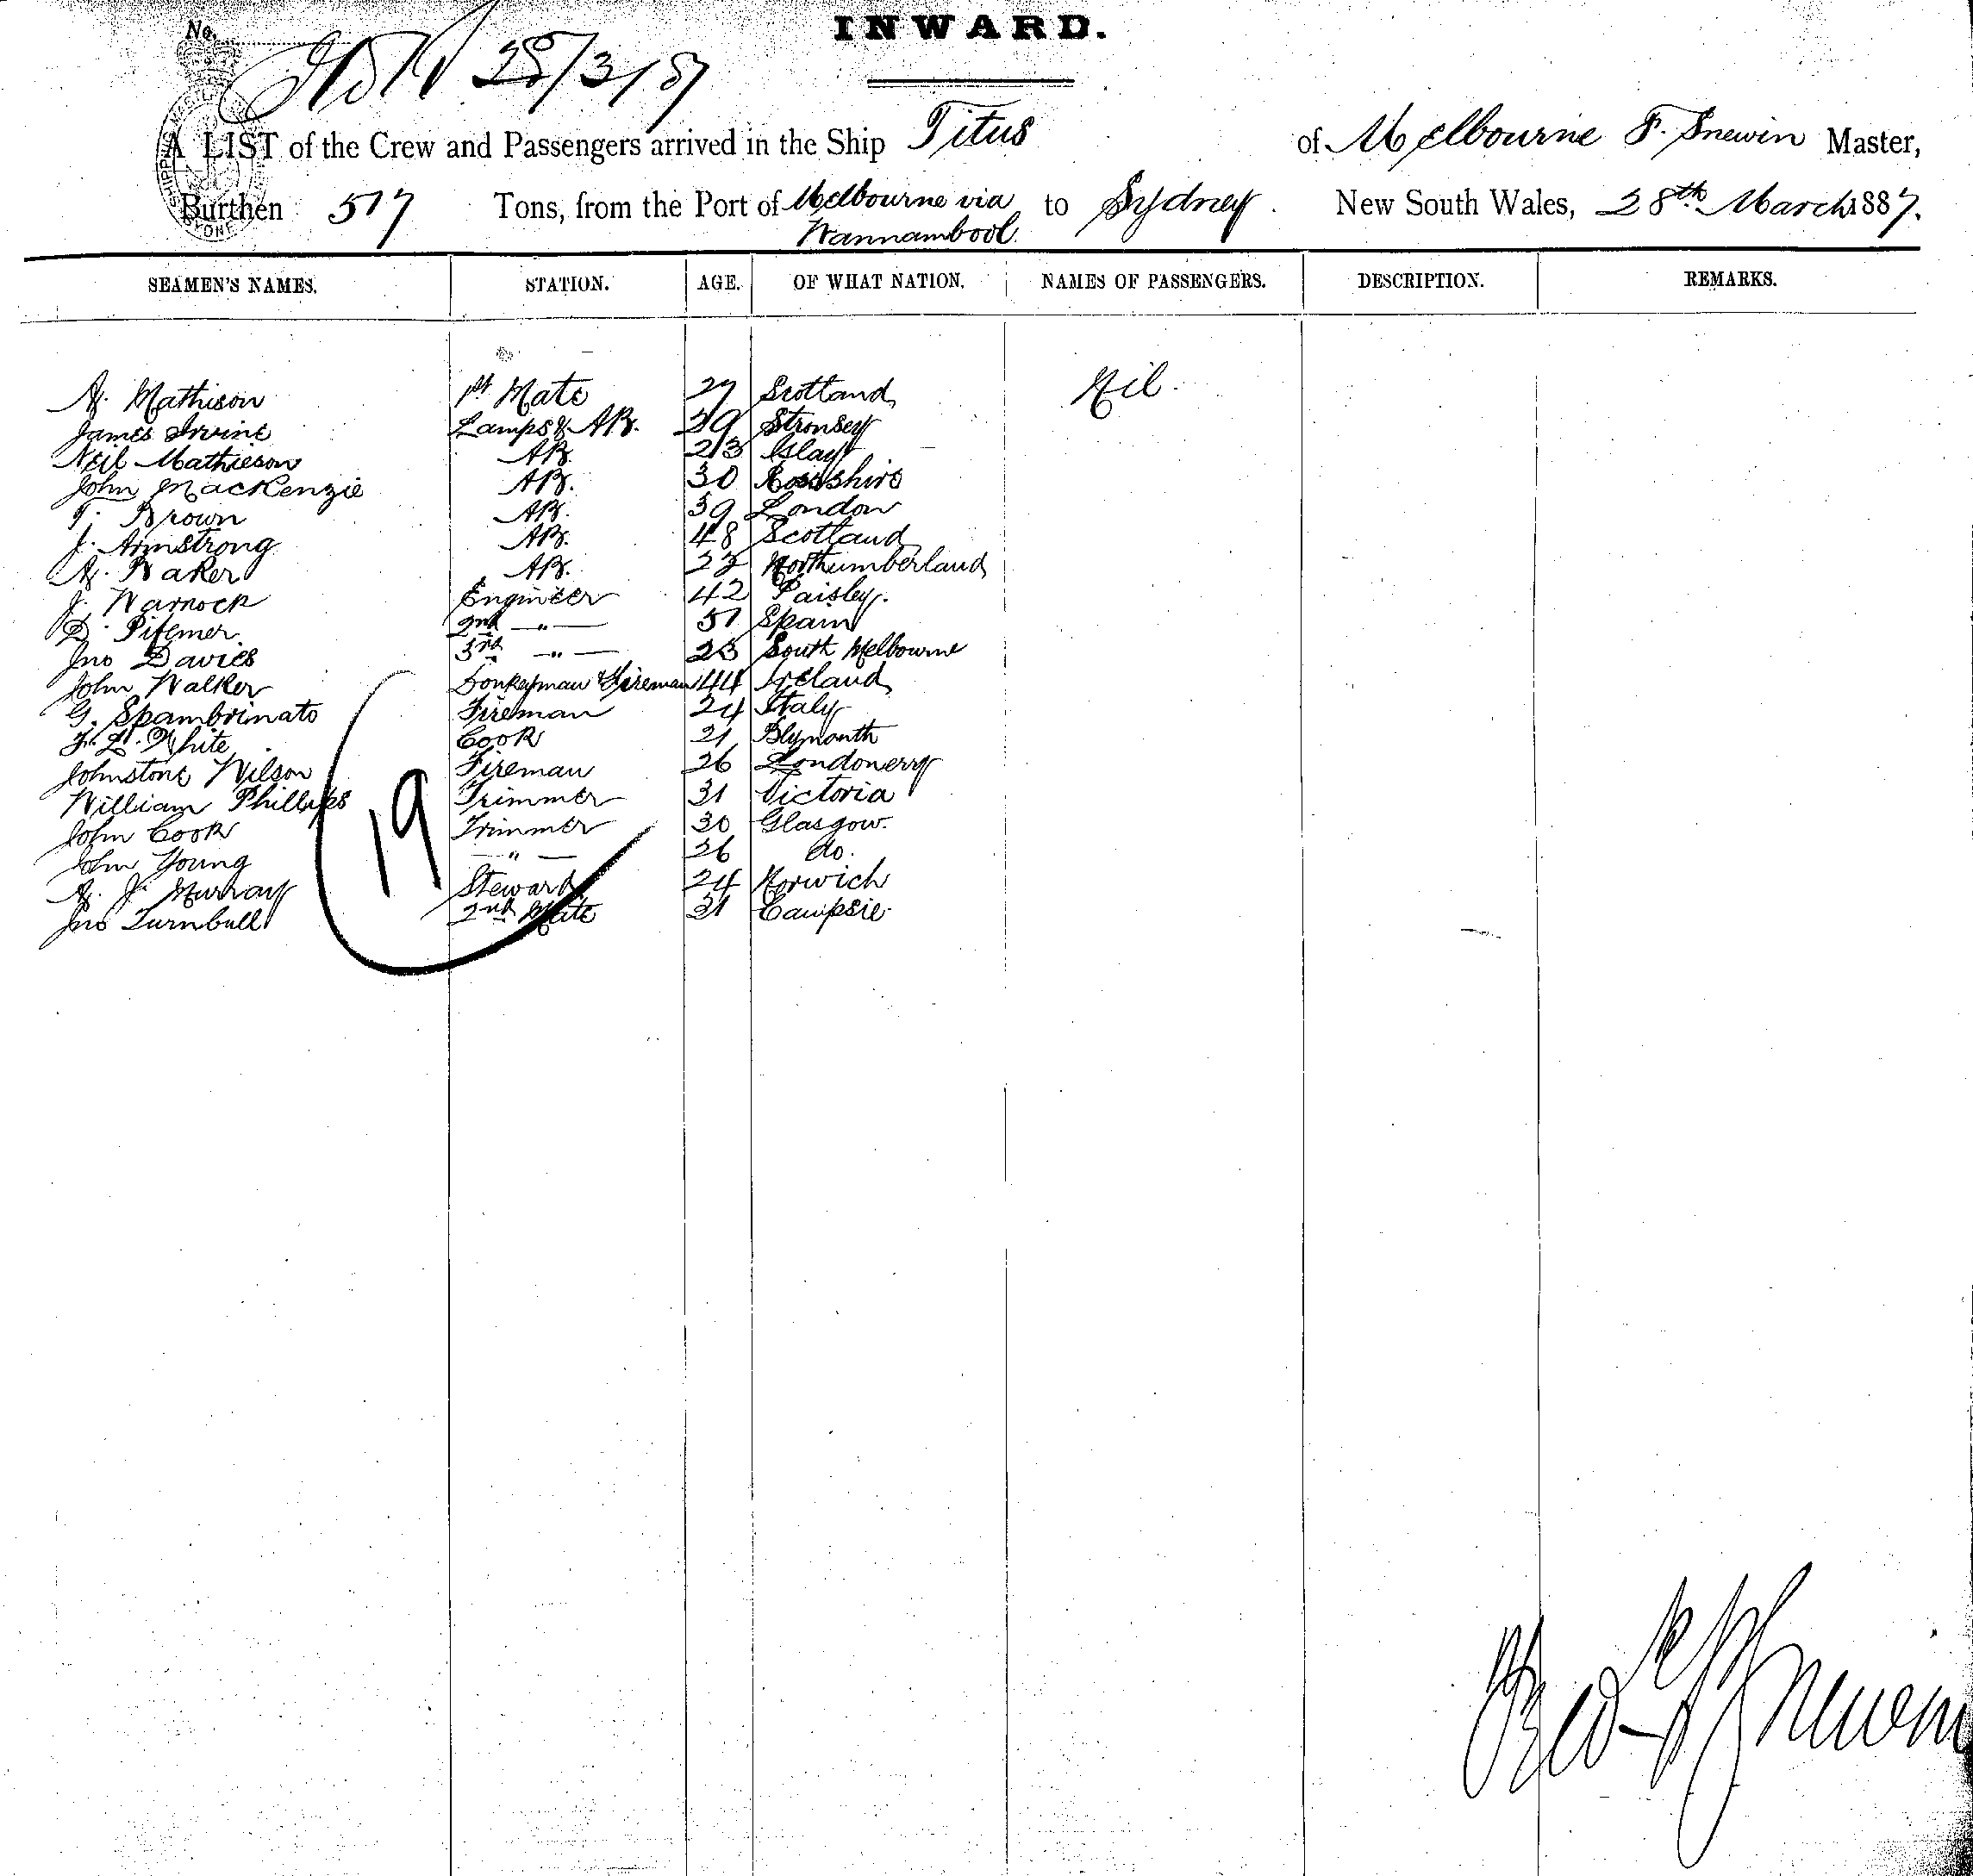 No.
INWARD.
28/3/87
A LIST of the Crew and Passengers arrived in the Ship Titus of Melbourne F. Snewin Master,
Burthen 517 Tons, from the Port of Melbourne via Wannambool. to Sydney. New South Wales, 28th March 1887.
SEAMEN'S NAMES. STATION. AGE. OF WHAT NATION. NAMES OF PASSENGERS. DESCRIPTION. REMARKS.
A. Mathison 1st Mate 27 Scotland Nil.
James Irvine Lamps & AB. 39 Stronsey
Neil Mathieson AB. 23 Islay
John MacKenzie AB. 30 Rossshire
T. Brown AB. 39 London
J. Armstrong AB. 48 Scotland
A. Baker AB. 23 Northumberland
J. Warnock Engineer 42 Paisley.
D. 2nd — " — 51 Spain
Jno Davies 3rd — " — 23 South Melbourne
John Walker Donkeyman & Fireman 44 Ireland
G. Spambrinato Fireman 24 Italy
F. L. White Cook 21 Plymouth
Johnstone Wilson Fireman 26 Londonerry
William Phillips Trimmer 31 Victoria
John Cook Trimmer 30 Glasgow.
John Young — " — 26 do.
A. J. Murray Steward 24 Norwich
Jno Turnbull 2nd Mate 31 Campsie.
19
Fred Snewin